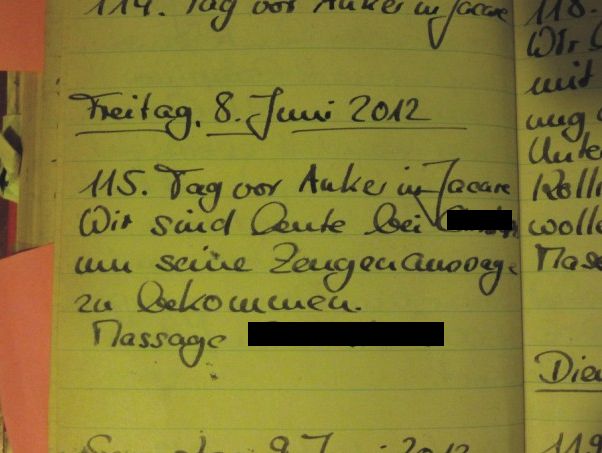 114. Tag vor Anker in Jacare
Freitag, 8. Juni 2012
115. Tag vor Anker in Jacare
Wir sind heute bei
um seine Zeugenaussage
zu bekommen.
Massage
9. Juni 2012
118.
Wir
mit
ung
wolle
Mas
Dien
119